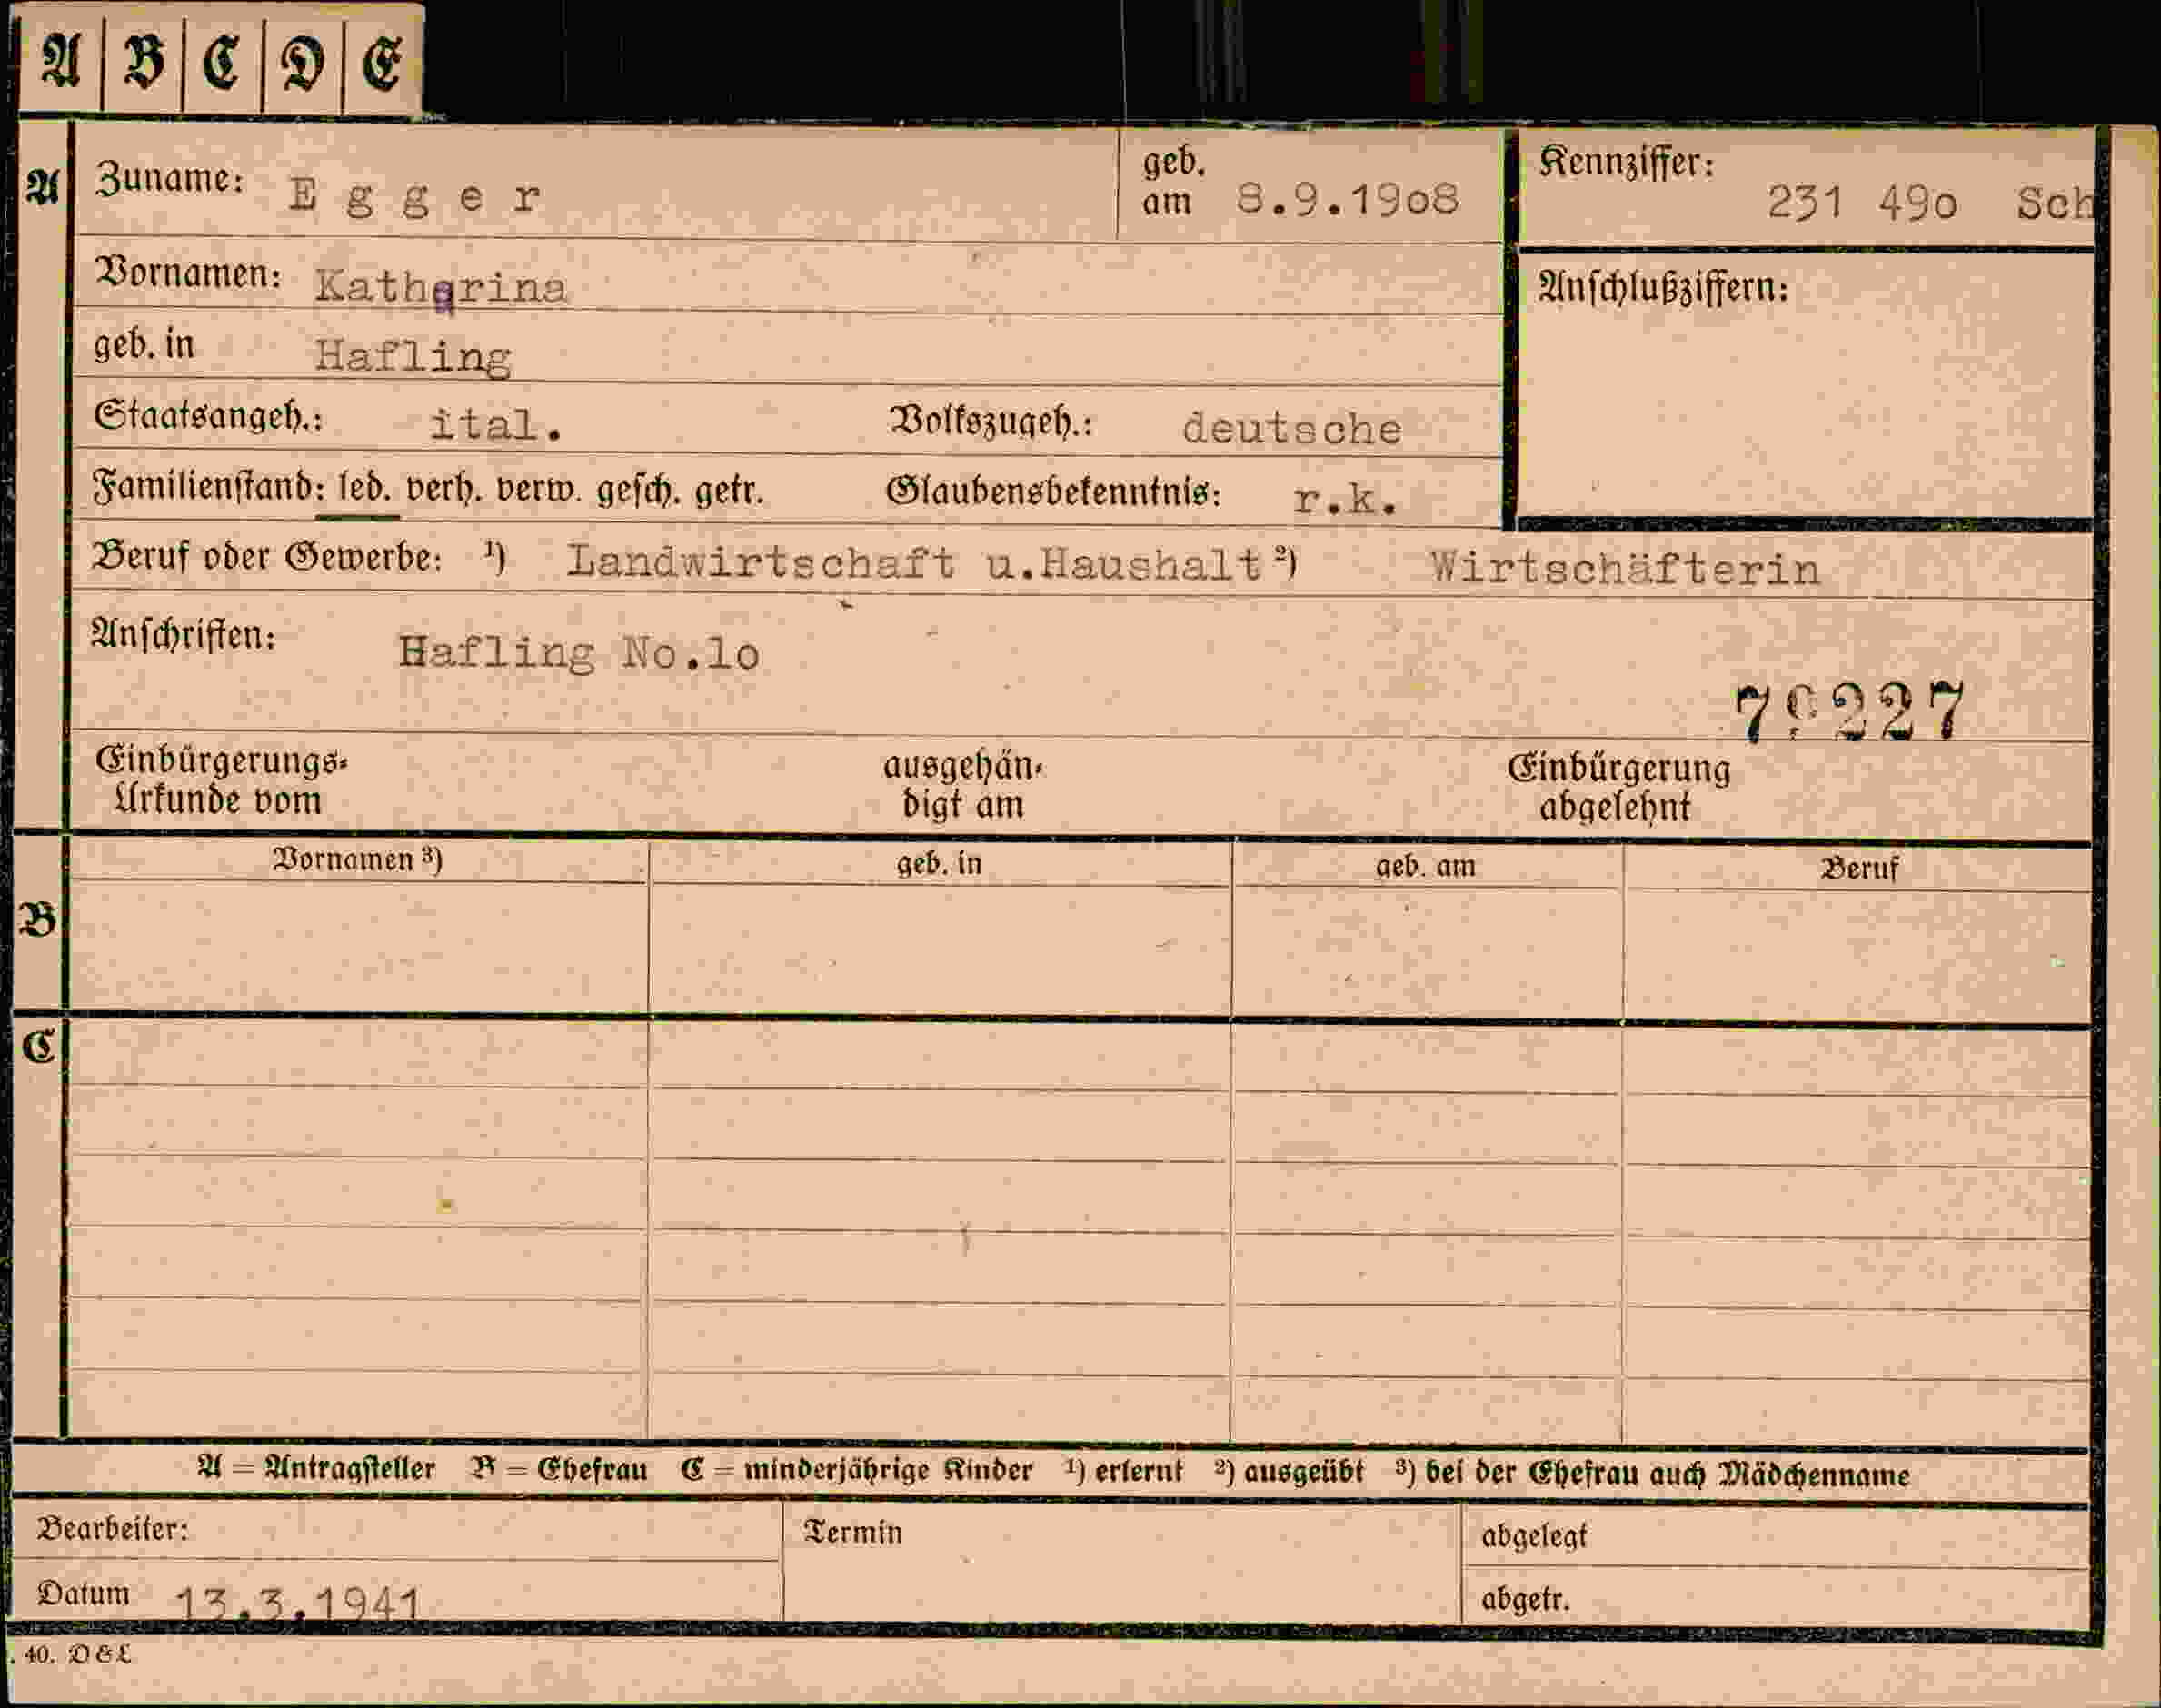 A B C D E
A Zuname: Egger geb. am 8.9.19o8 Kennziffer: 231 49o Sch
Vornamen: Katharina Anschlußziffern:
geb. in Hafling
Staatsangeh.: ital. Volkszugeh.: deutsche
Familienstand: led. verh. verw. gesch. getr. Glaubensbekenntnis: r.k.
Beruf oder Gewerbe: ¹) Landwirtschaft u.Haushalt ²) Wirtschäfterin
Anschriften: Hafling No.lo
Einbürgerungs-Urkunde vom ausgehändigt am Einbürgerung abgelehnt
Vornamen ³) geb. in geb. am Beruf
B
C
A = Antragsteller B = Ehefrau C = minderjährige Kinder ¹) erlernt ²) ausgeübt ³) bei der Ehefrau auch Mädchenname
Bearbeiter: Termin abgelegt
Datum 13.3.1941 abgetr.
. 40. D & L